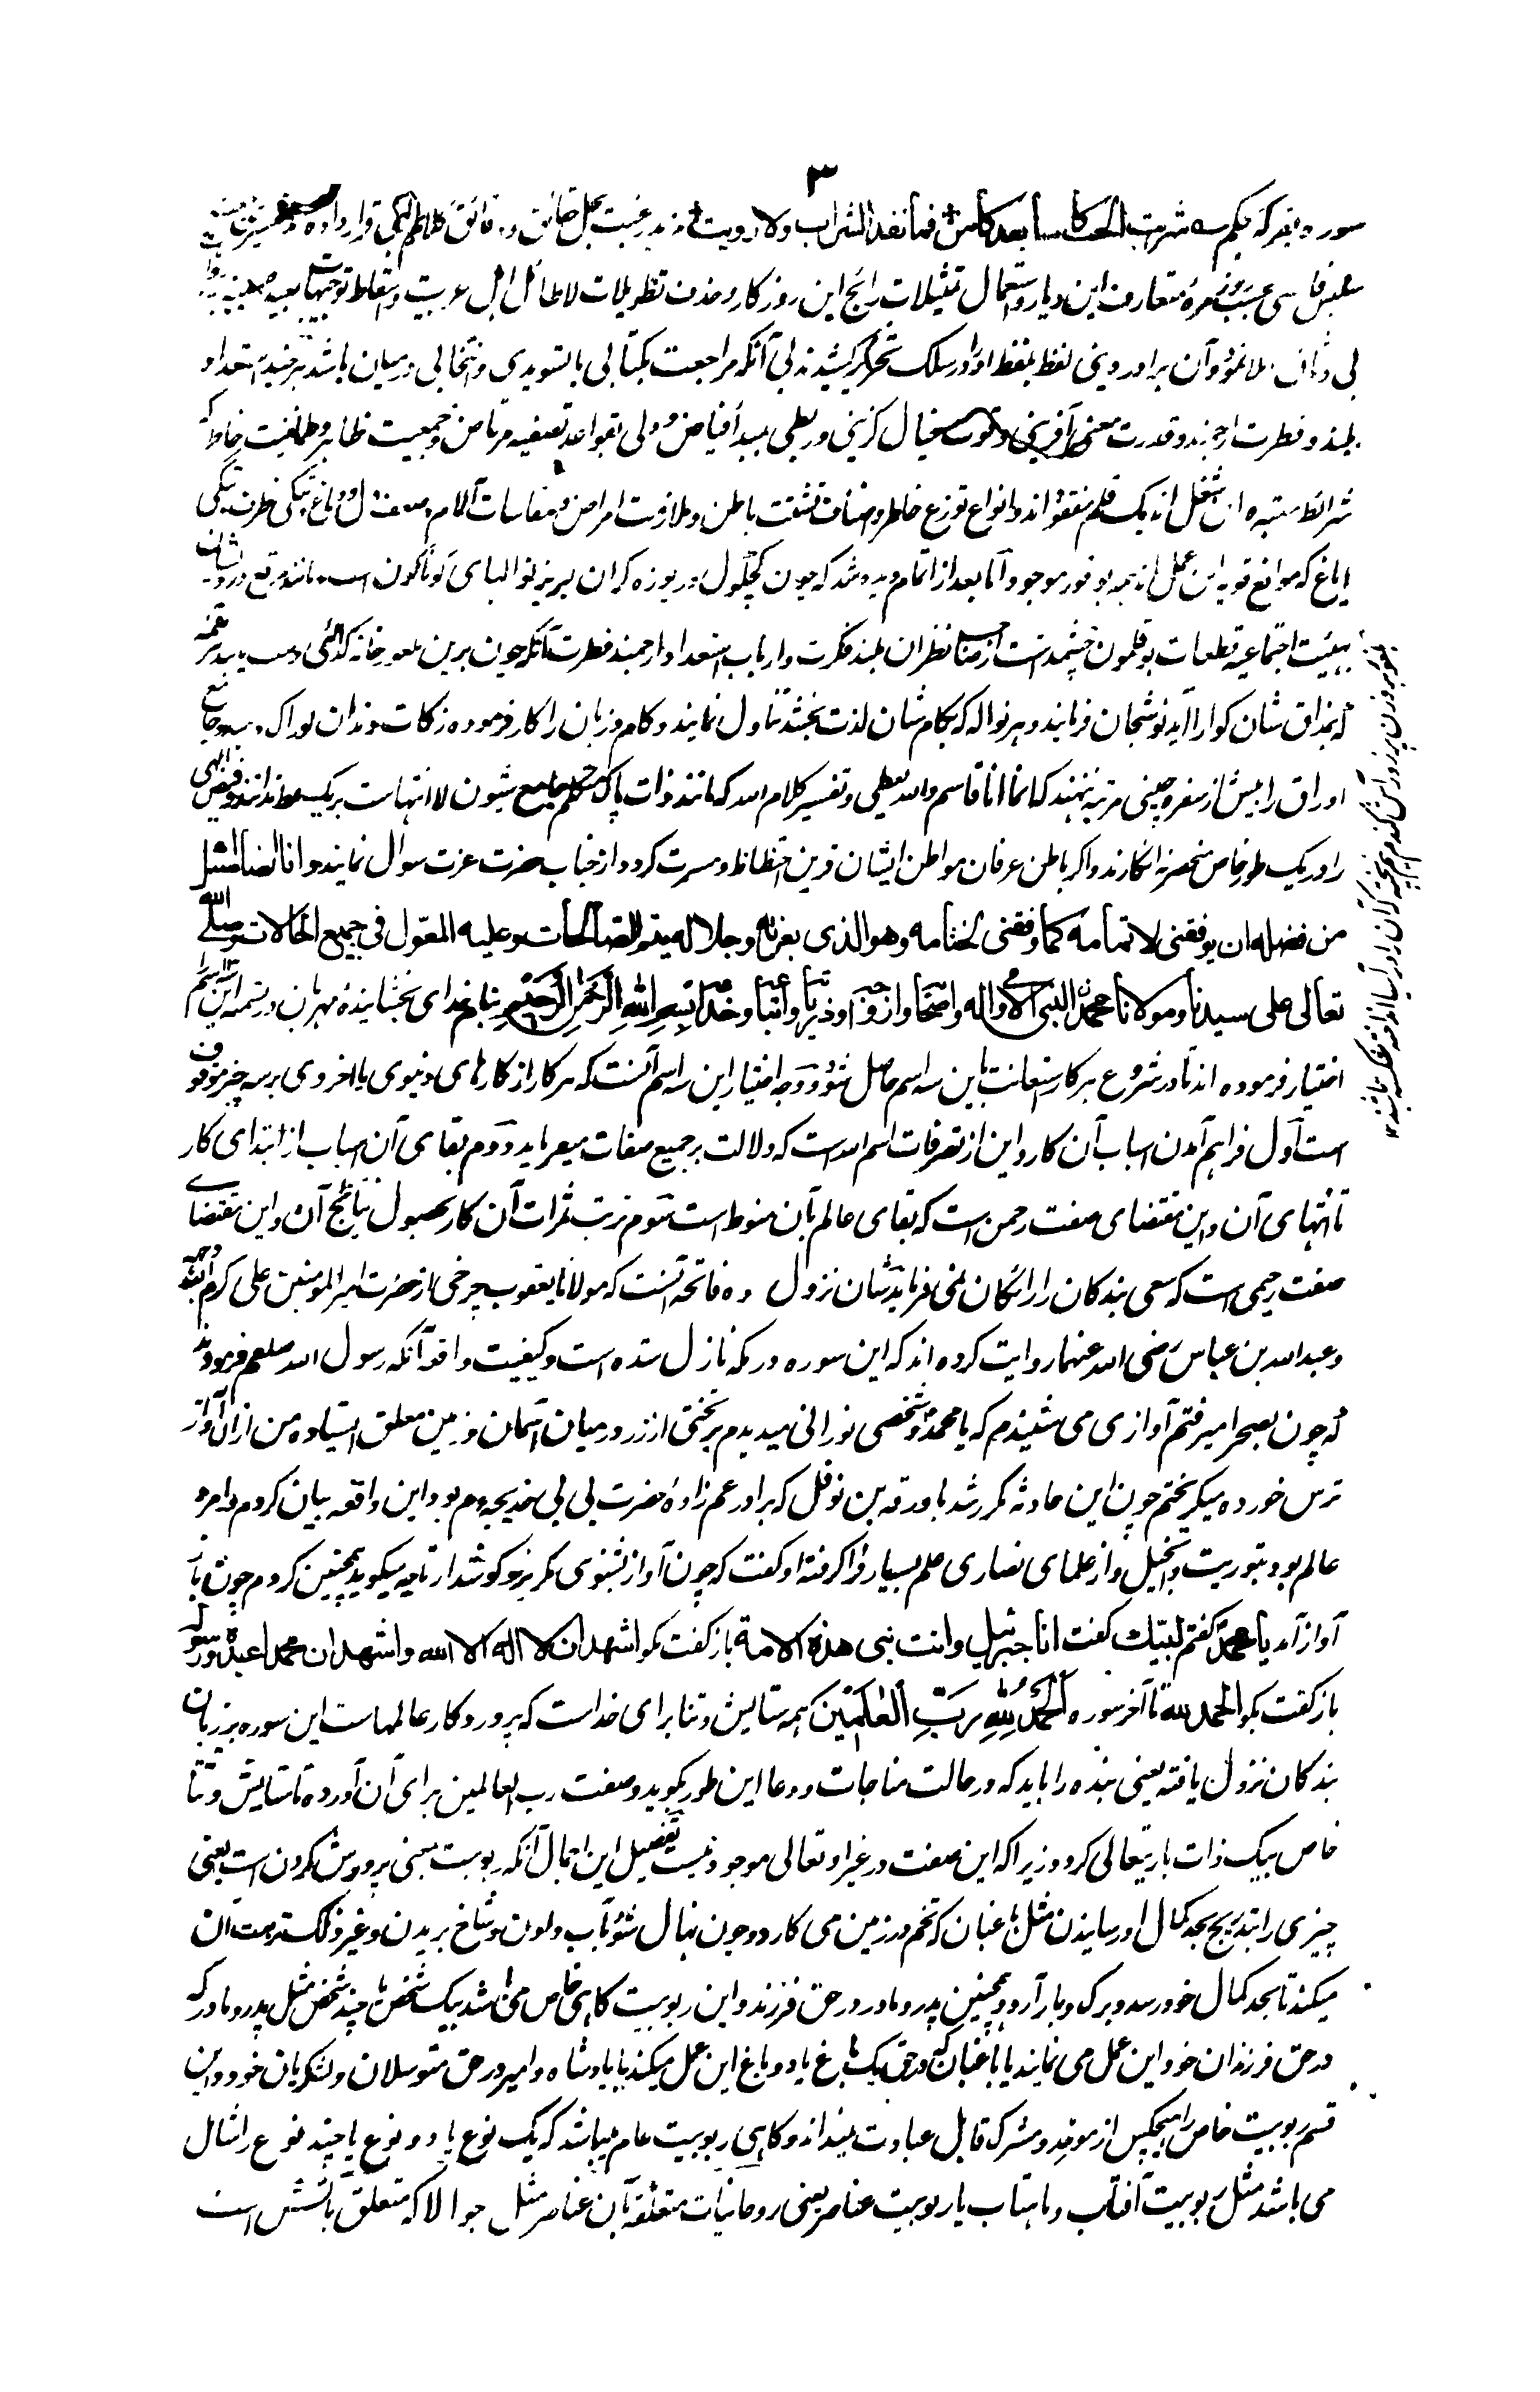 ۳
سوره بقر که بحکم شربت الحب کاسا بعد کاس فما نفد الشراب ولا رویت رغبت بحل حقائق و دقائق کلام الٰهی قرار داده
سلیس فارسی حسب روزمرهٔ متعارف این دیار و استعمال تمثیلات رائج این روزکار و حذف تطویلات لاطائل اهل عربیت و اسقاط توجیهات بعیده
املا نمود و آن برادر دینی لفظ بلفظ او را در سلک تحریر کشیدند بی آنکه مراجعت بکتابی یا تسویدی و انتخابی درمیان باشد هرچند استعداد
بلند و فطرت ارجمند و قدرت معنی آفرینی و قوت خیال گزینی و ربطی بمبدأ فیاض و ولی بقواعد تصفیه مرتاض و جمعیت ظاهر و طمانینت خاطر که
شرائط معتبره این شغل اند یک قلم مفقود اند و انواع توزع خاطر و اصناف تشتت باطن و ملازمت امراض و مقاسات آلام و ضعف دل و دماغ و تنگی ظرف
ایاغ که موانع قویه این عمل اند همه بوفور موجود اما بعد از اتمام دیده شد که چون کچکول دریوزه کران لبریز نوالهای کوناکون است مانند مرقع درویشان
بهیئت اجتماعیه قطعات بوقلمون چشمداشت از صاحب نظران بلند فکرت و ارباب استعداد ارجمند فطرت آنکه چون برین طعور خانه کدائی دست یابند هر لقمه
که بمذاق شان کوارا آید نوشجان فرمایند و هر نواله که بکام شان لذت بخشد تناول نمایند و کام و زبان را کار فرموده زکات دندان بوراک و جامع
اوراق را بیش از سفره چینی مرتبه ننهند که انما انا قاسم والله یعطی و تفسیر کلام الله که مانند ذات پاک متکلم جامع شیون لا انتهاست بر یک خط ندانند و فیض الٰهی
را در یک طور خاص منحصر نه انکارند و اکر باطن عرفان مواطن ایشان قرین احتظاظ و مسرت کردد از جناب حضرت عزت سوال نمایند و انا ایضا اسئل
من فضله ان یوفقنی لاتمامه کما وفقنی لختامه وهو الذی بعزته و جلاله یتم الصالحات و علیه المعول فی جمیع الحالات و صلی الله
تعالی علی سیدنا و مولانا محمد النبی الامی و اله و اصحابه و ازواجه و ذریاته و اتباعه و خدامه بِسْمِ اللّٰهِ الرَّحْمٰنِ الرَّحِیْمِ بنام خدای بخشایندهٔ مهربان در تسمیه این سه اسم را
اختیار فرموده اند تا در شروع هر کار استعانت باین سه اسم حاصل شود و وجه اختیار این سه اسم آنست که هر کار از کارهای دنیوی یا اخروی بر سه چیز موقوف
است اول فراهم آمدن اسباب آن کار و این از تصرفات اسم الله است که دلالت بر جمیع صفات میفرماید دوم بقای آن اسباب از ابتدای کار
تا انتهای آن و این مقتضای صفت رحمن است که بقای عالم بآن منوط است سوم ترتب ثمرات آن کار بحصول نتائج آن و این مقتضای
صفت رحیمی است که سعی بندکان را رائکان نمی فرماید شان نزول سوره فاتحه آنست که مولانا یعقوب چرخی از حضرت امیر المومنین علی کرم الله وجهه
و عبد الله بن عباس رضی الله عنهما روایت کرده اند که این سوره در مکه نازل شده است و کیفیت واقعه آنکه رسول الله صلعم فرمودند
که چون بصحرا میرفتم آوازی می شنیدم که یا محمد و شخصی نورانی میدیدم بر تختی از زر درمیان آسمان و زمین معلق ایستاده من ازان آواز
ترس خورده میکریختم چون این حادثه مکرر شد با ورقه بن نوفل که برادر عم زادهٔ حضرت بی بی خدیجه بود این واقعه بیان کردم و او مرد
عالم بود بتوریت و انجیل و از علمای نصاری علم بسیار فرا کرفته او کفت که چون آواز بشنوی مکریز و کوش دار تا چه میکوید همچنین کردم چون باز
آواز آمد یا محمد کفتم لبیک کفت انا جبرئیل و انت نبی هذه الامة باز کفت بکو اشهد ان لا اله الا الله و اشهد ان محمدا عبده و رسوله
باز کفت بکو الحمد لله تا آخر سوره اَلْحَمْدُ لِلّٰهِ رَبِّ الْعٰلَمِیْنَ همه ستایش و ثنا برای خداست که پروردکار عالمهاست این سوره بر زبان
بندکان نزول یافته یعنی بنده را باید که در حالت مناجات و دعا این طور بکوید و صفت رب العالمین برای آن آورده تا ستایش و ثنا
خاص بیک ذات باریتعالی کردد زیرا که این صفت در غیر او تعالی موجود نیست تفصیل این اجمال آنکه ربوبیت مبنی پرورش کردن است یعنی
چیزی را بتدریج بحد کمال او رسانیدن مثل باغبان که تخم در زمین می کارد و چون نهال شود بآب دادن و شاخ بریدن و غیر ذلک تربیت آن
میکند تا بحد کمال خود رسد و برک و بار آرد و همچنین پدر و مادر در حق فرزند و این ربوبیت کاهی خاص می باشد بیک شخص یا چند شخص مثل پدر و مادر که
در حق فرزندان خود این عمل می نمایند یا باغبان که در حق یک باغ یا دو باغ این عمل میکند یا پادشاه و امیر در حق متوسلان و لشکریان خود و این
قسم ربوبیت خاص را هیچکس از موحد و مشرک قابل عبادت نمیداند و کاهی ربوبیت عام میباشد که یک نوع یا دو نوع یا چند نوع را شامل
می باشد مثل ربوبیت آفتاب و ماهتاب یا ربوبیت عناصر یعنی روحانیات متعلقه بآن عناصر مثل جوالا که متعلق بآتش است